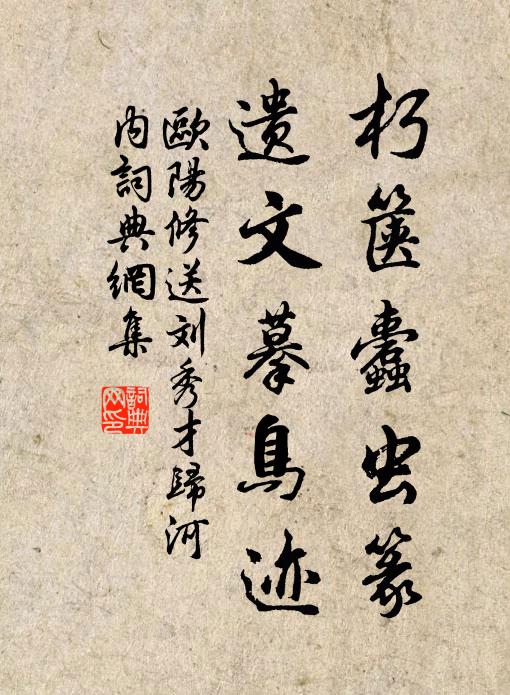 朽箧蠹虫篆
遗文摹鳥迹
歐陽修送刘秀才歸河
内詞典網集
詞典网印